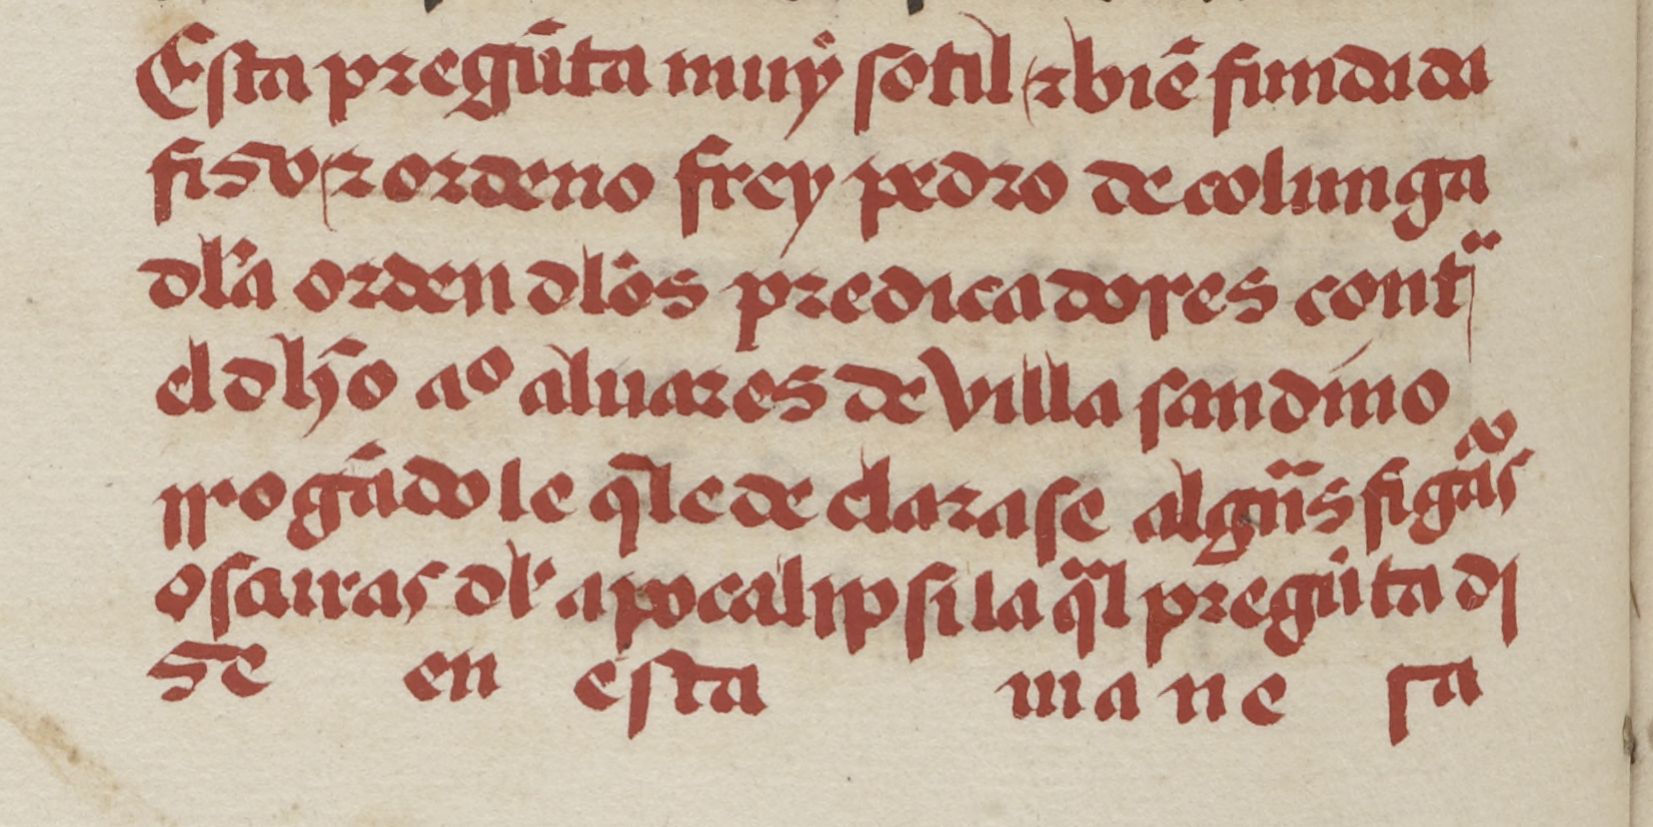 Esta pregũta muy sotil ⁊ biẽ fundada
fiso ⁊ ordeno frey pedro de colunga
dl'a orden dl'os predicadores cont̃
el dho aº aluares de villa sandino
rrogãdo le q̃ le declarase algũs figãs
oscuras dl' apocalipsi la q̃l pregũta di
se en esta mane ra